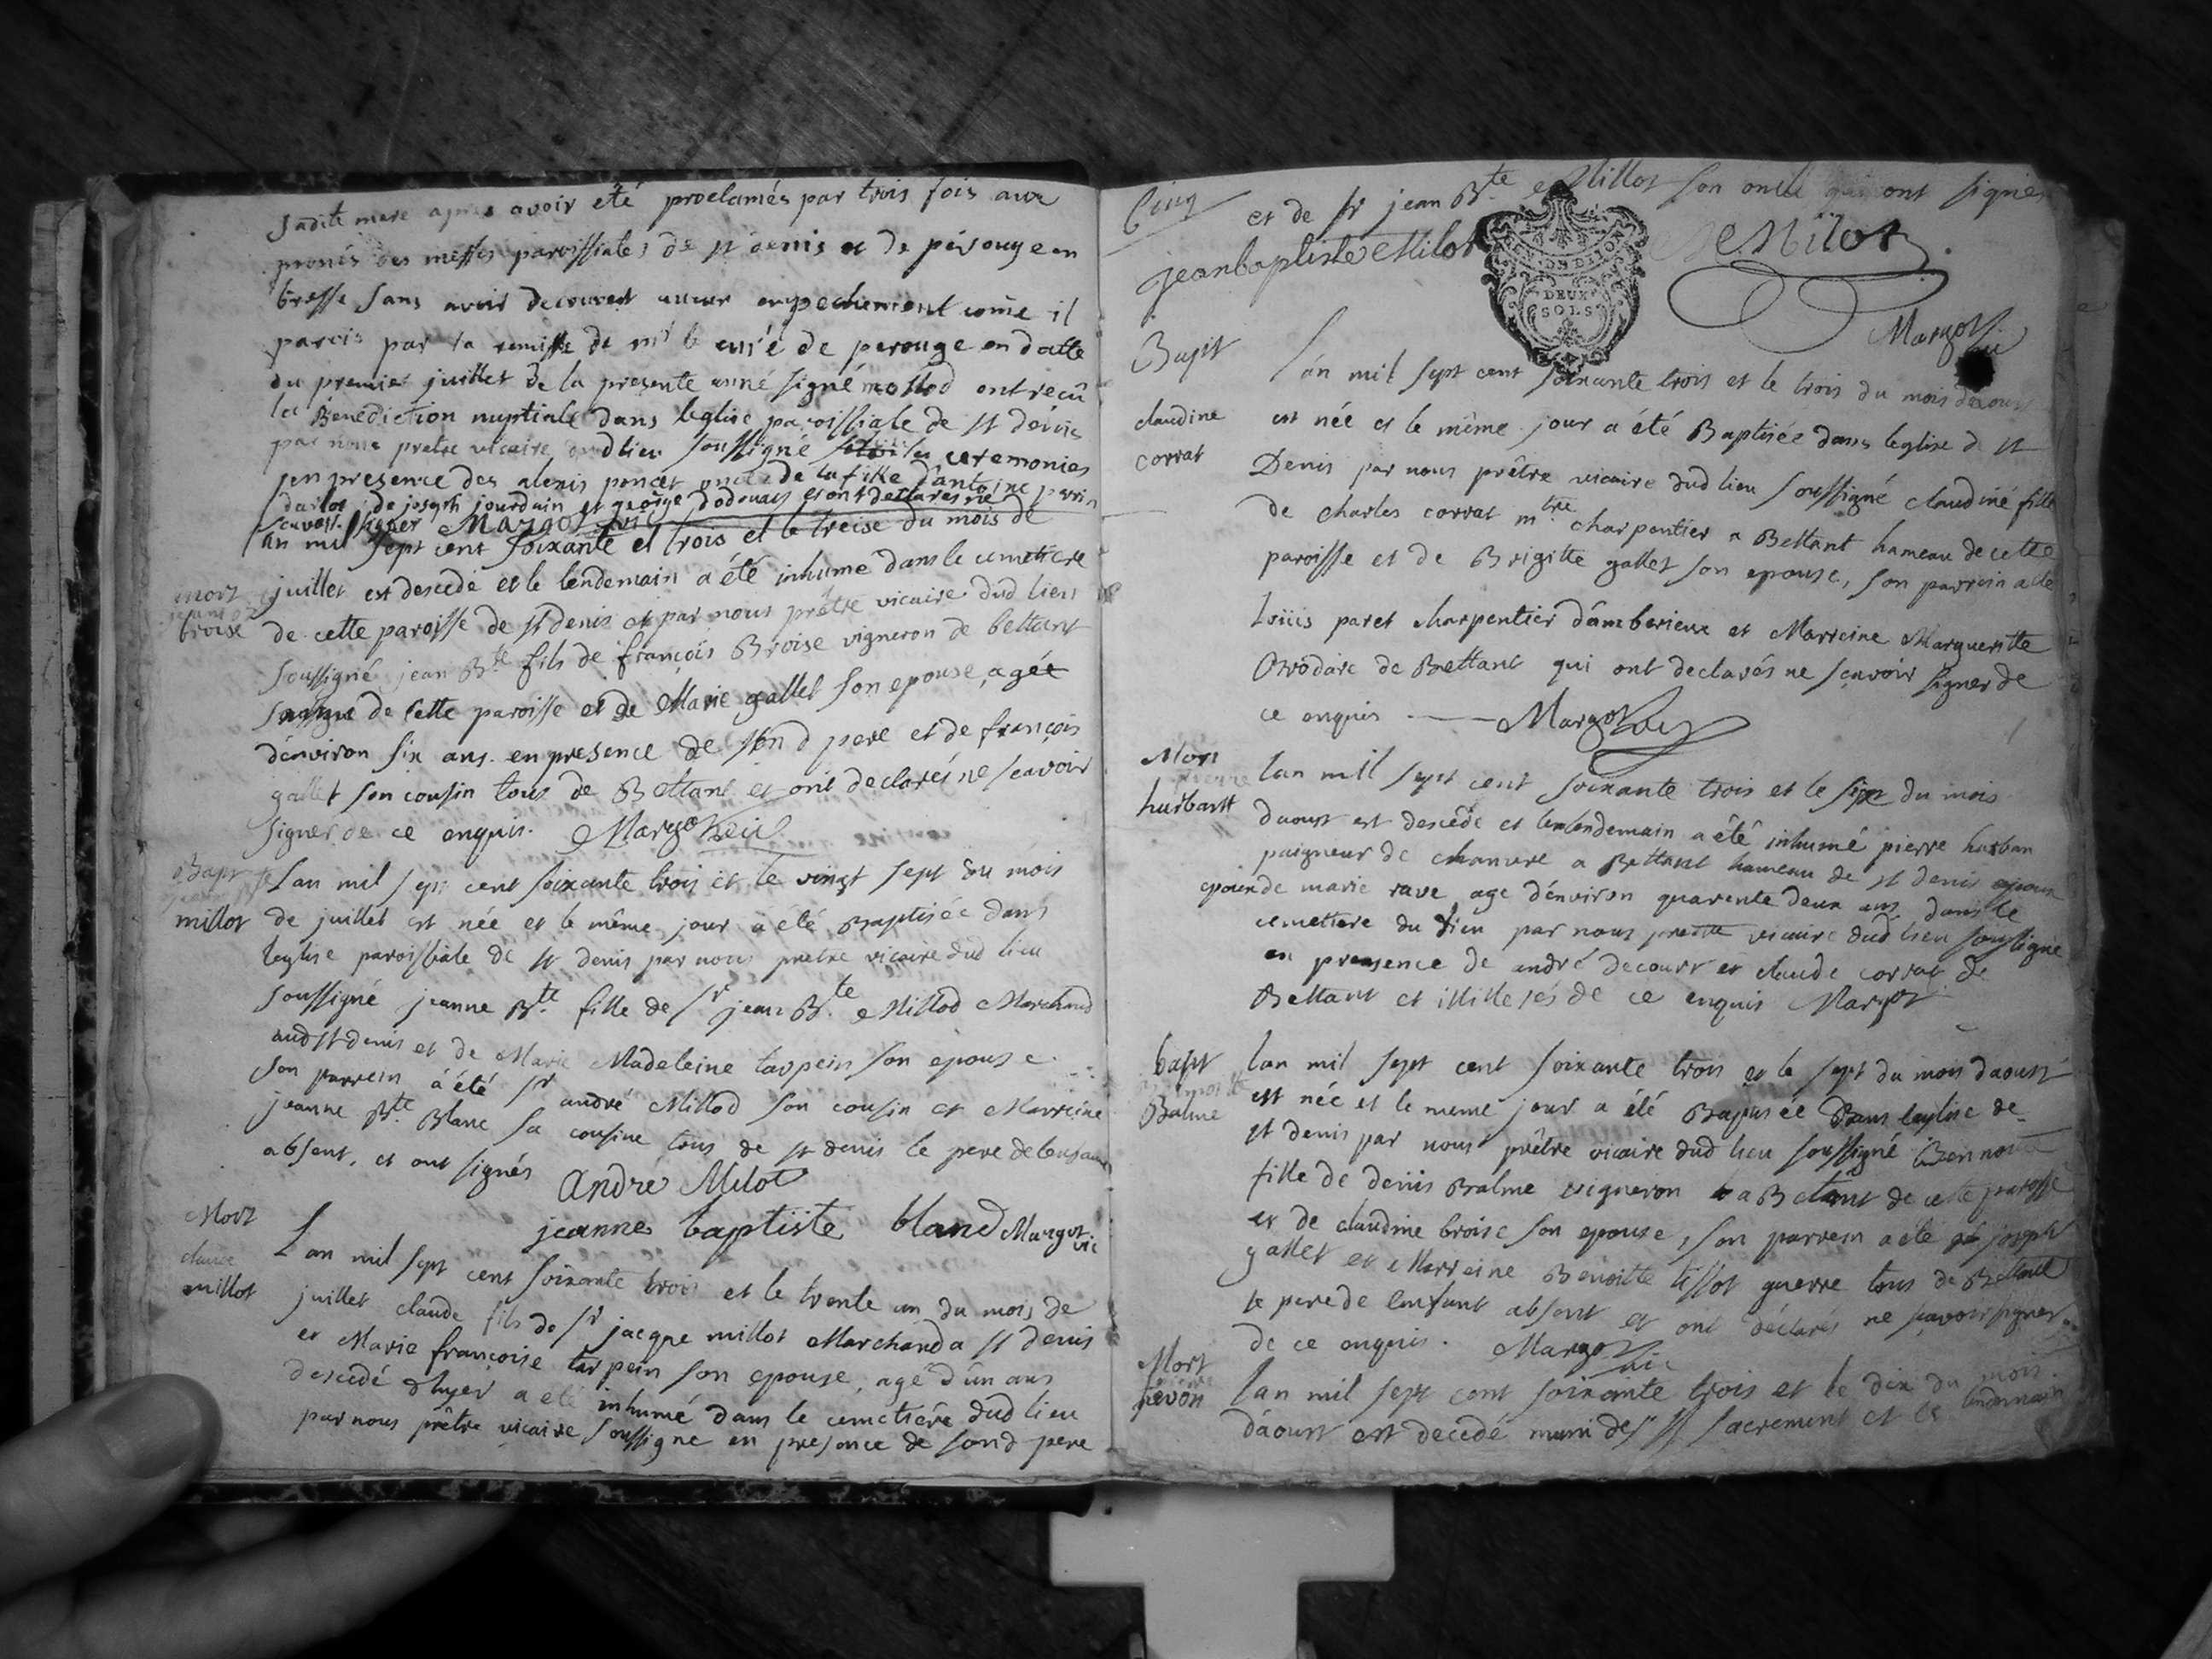 sadite mere après avoir été proclamés par trois fois aux
pronés des messes paroissiales de st denis et de pérouge en
bresse sans avoir decouvert aucun empechement come il
parois par la remisse de mr le curé de perouge en datte
du premier juillet de la presente anné signé mollod ont recû
la Benediction nuptiale dans leglise paroissiale de st dénis
par nous pretre vicaire dudlieu soussigné les ceremonies
en presence des alexis poncet oncle de la fille d'antoine perrin
de joseph jourdain et george dodouat et ont declarés ne
scavoir signer Margot vic
lan mil sept cent soixante et trois et le treise du mois de
mort
broise
juillet est descedé et le lendemain a été inhumé dans le cemettere
de cette paroisse de st denis et par nous prêtre vicaire dud lieu
soussigné jean Bte fils de françois Broise vigneron de bettant
de cette paroisse et de Marie gallet son epouse, agée
dénviron six ans. en presence de sond pere et de françois
gallet son cousin tous de Bettant et ont declarés ne scavoir
signer de ce enquis. Margot vic
Bapt
millot
Lan mil sept cent soixante trois et le vingt sept du mois
de juillet est née et le même jour a été Baptisée dans
leglise paroissiale de st denis par nous pretre vicaire dud lieu
soussigné jeanne Bte fille de sr jean Bte Millod Marchand
aud st denis et de Marie Madeleine tarpein son epouse.
son parrein a été sr andré Millod son cousin et Marreine
jeanne Bte Blanc sa cousine tous de st denis le pere de lenfant
absent, et ont signés
André Milot
jeanne baptiste bland Margot vic
Mort
claude
millot
Lan mil sept cent soixante trois et le trente un du mois de
juillet claude fils de sr jacque millot Marchand a st denis
et Marie françoise tarpein son epouse, agé d'un ans
descedé dhyer a eté inhumé dans le cemetiére dud lieu
par nous prêtre vicaire soussigne en presence de sond pere
Cinq
et de sr jean Bte Millot son oncle qui ont signes
jean baptiste Milot
Milot
Margot vic
DEUX
SOLS
Bapt
claudine
corrat
Lan mil sept cent soixante trois et le trois du mois daoust
est née et le même jour a été Baptisée dans leglise d st
Denis par nous prêtre vicaire dud lieu soussigné claudine fille
de charles corrat mtre charpentier a Bettant hameau de cette
paroisse et de Brigitte gallet son epouse, son parrein a été
loüis paret charpentier d'amberieux et Marreine Marguerite
Orodare de Bettant qui ont declarés ne sçavoir signer de
ce enquis Margot vic
Mort
pierre
hurbantt
lan mil sept cent soixante trois et le six du mois
daoust est descédé et le lendemain a été inhumé pierre hurban
paigneur de chanvre a Bettant hameau de st denis
epoux de marie rave agé dénviron quarente deux ans dans le
cemettere du lieu par nous prettre vicaire dud lieu soussigné
en presence de andré decourt et claude corrat de
Bettant et illiterés de ce enquis Margot
bapt
Balme
lan mil sept cent soixante trois et le sept du mois daoust
est née et le meme jour a été Baptisée Dans leglise de
st denis par nous prêtre vicaire dud lieu soussigné Bennoite
fille de denis Balme vigneron a Betant de cette paroisse
et de claudine broise son epouse, son parrein a été joseph
gallet et Marreine Benoitte tissot guerre tous de Bettant
le pere de lenfant absent et ont déclarés ne sçavoir signer
de ce enquis. Margot vic
Mort
pevon
lan mil sept cent soixante trois et le dix du mois
dáoust est decedé muni des sts sacrement et le lendemain